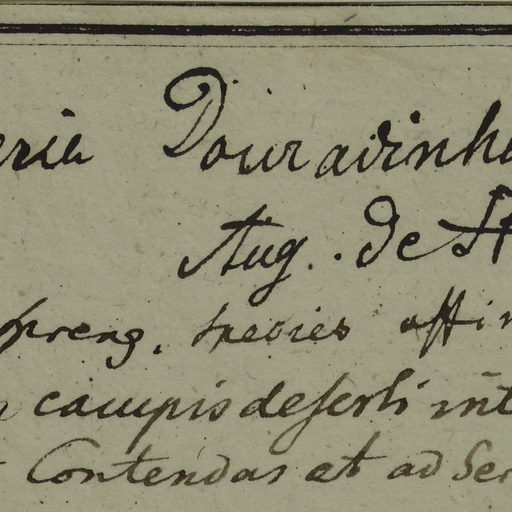 eria Douradinha
Aug. de St
Spreng. species affin
campis deserti int
Contendas et ad Ser